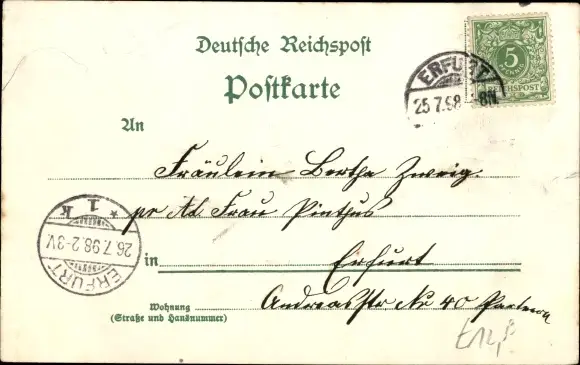 Deutsche Reichspost
Postkarte
ERFURT
25.7.98
8N
5
PFENNIG
REICHSPOST
An
Fräulein Bertha Zweig.
pr Ad. Frau Pinthus
in Erfurt
Andreasstr No 40 Parterre
Wohnung
(Straße und Hausnummer)
ERFURT
26.7.98.2-3V.
* 1 k